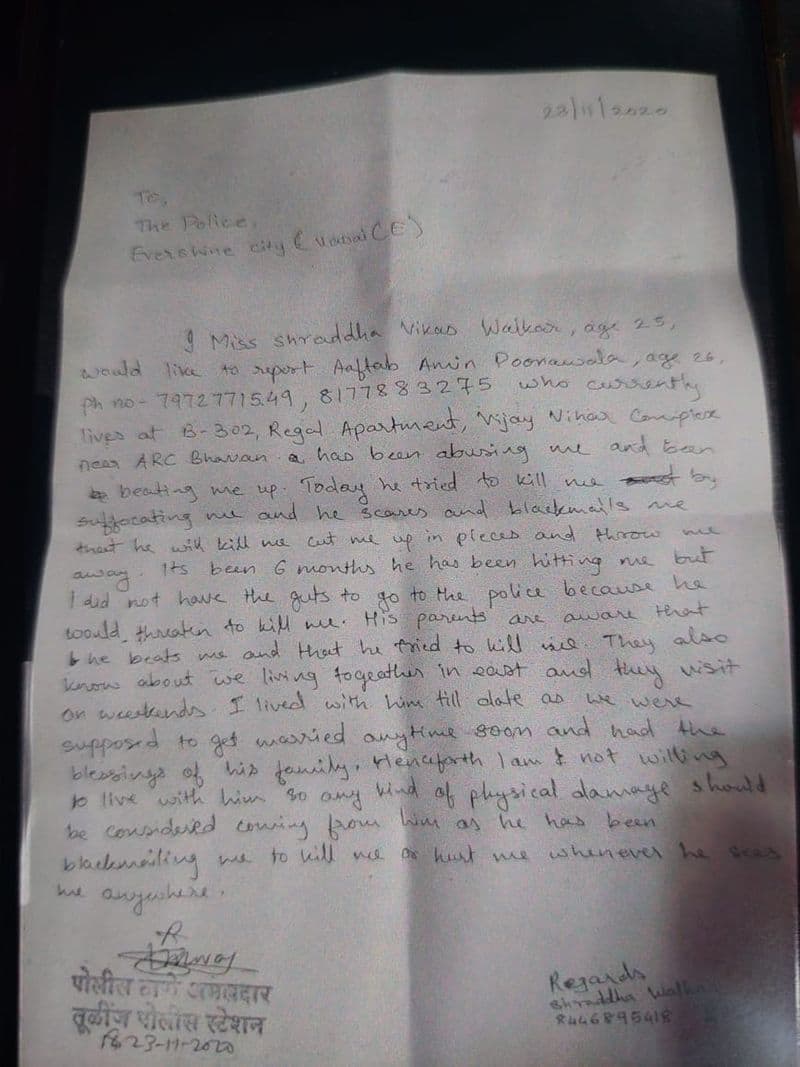 23/11/2020
To,
The Police,
Evershine city ( Vasai (E)
I Miss Shraddha Vikas Walkar, age 25,
would like to report Aaftab Amin Poonawala, age 26,
Ph no - 7972771549, 8177883275 who currently
lives at B-302, Regal Apartment, Vijay Vihar Complex
near ARC Bhavan has been abusing me and been
beating me up. Today he tried to kill me by
suffocating me and he scares and blackmails me
that he will kill me cut me up in pieces and throw me
away. Its been 6 months he has been hitting me but
I did not have the guts to go to the police because he
would threaten to kill me. His parents are aware that
he beats me and that he tried to kill me. They also
know about we living togeather in east and they visit
on weekends. I lived with him till date as we were
supposed to get married anytime soon and had the
blessings of his family. Henceforth I am not willing
to live with him so any kind of physical damage should
be considered coming from him as he has been
blackmailing me to kill me or hurt me whenever he sees
me anywhere.
पोलीस ठाणे अंमलदार
तूळींज पोलीस स्टेशन
23-11-2020
Regards
Shraddha Walkar
8446895418